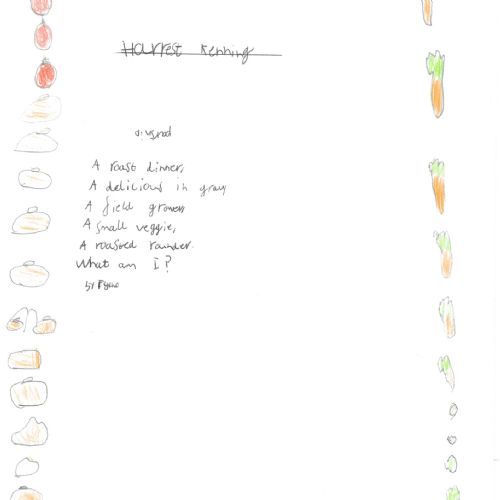 Harvest Kenning
A roast dinner,
A delicious in gravy
A field grower
A small veggie,
A roasted rounder.
What am I?
by